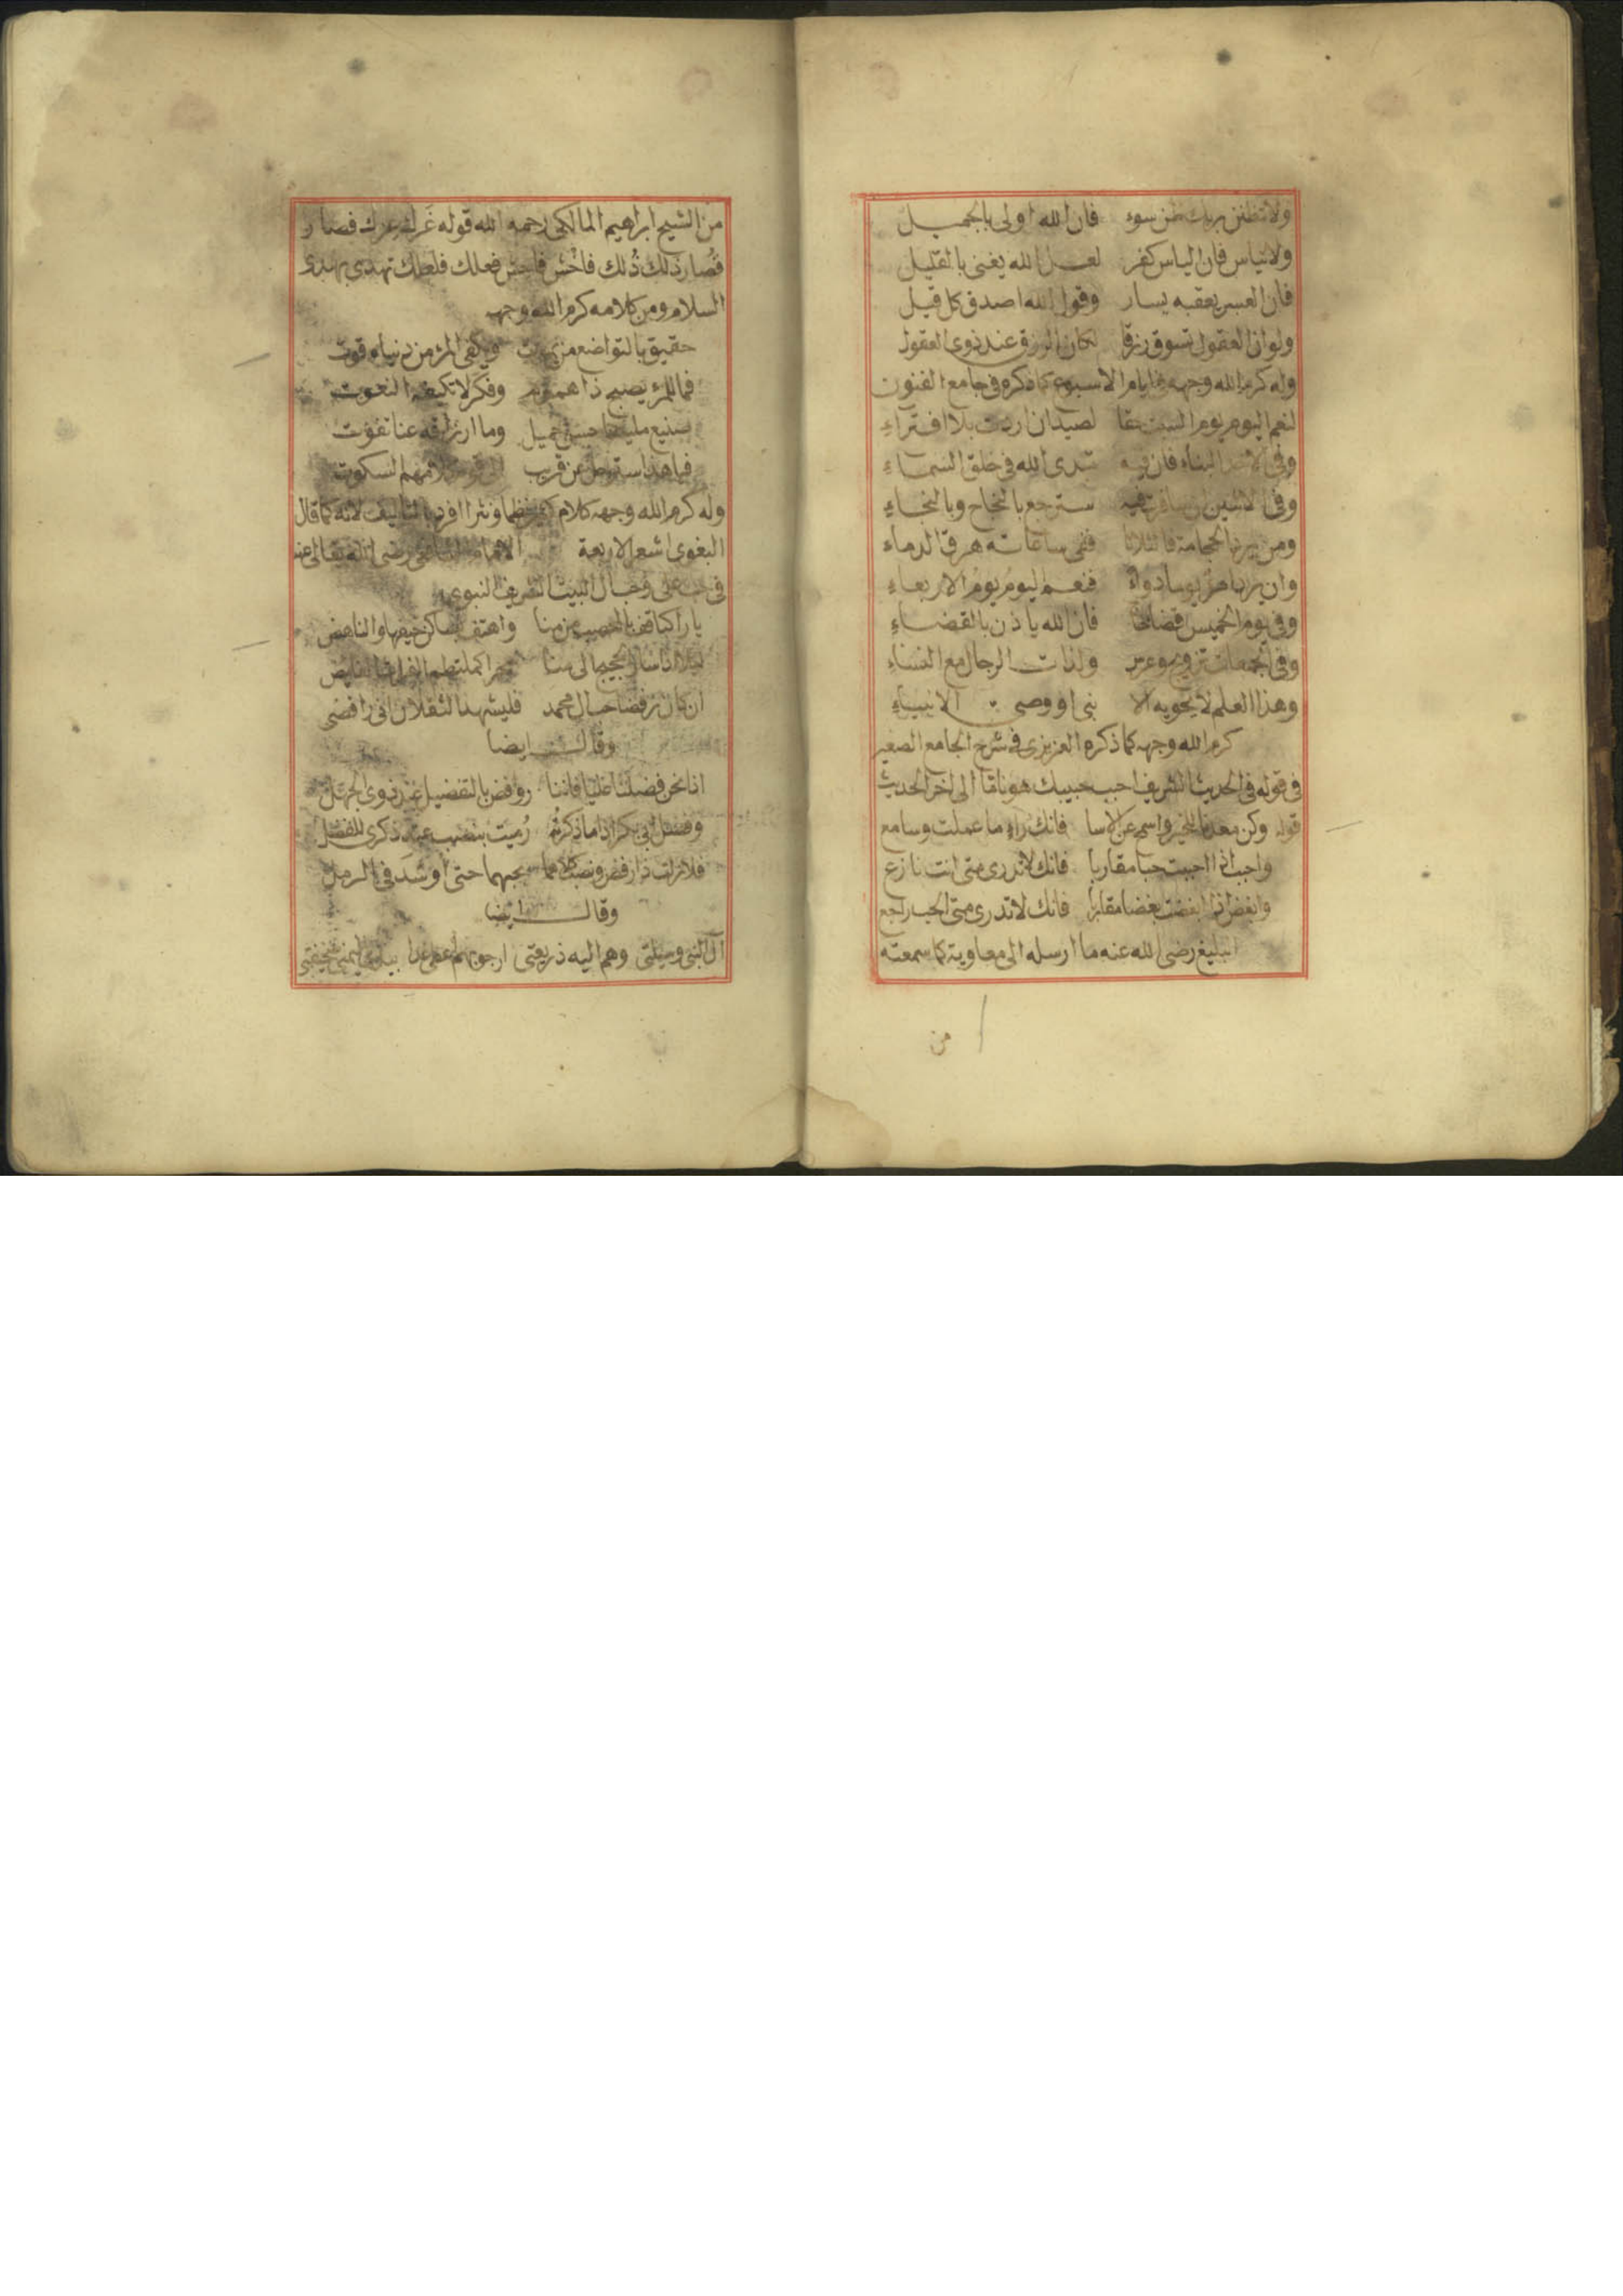 ولا تظنن بربك ظن سوء فان الله اولى بالجميل
ولا تياس فان الياس كفر لعل الله يغنى بالقليل
فان العسر يعقبه يسار وقول الله اصدق كل قيل
ولو ان العقول تسوق رزقا لكان الرزق عند ذوى العقول
وله كرم الله وجهه فى ايام الاسبوع كما ذكره فى جامع الفنون
لنعم اليوم يوم السبت حقا لصيد ان اردت بلا افتراء
وفى الاحد البناء فان فيه تبدى الله فى خلق السماء
وفى الاثنين ان سافرت فيه سترجع بالنجاح وبالنجاء
ومن يرد الحجامة فالثلاثا ففى ساعاته هرق الدماء
وان يرد امرؤ يوما دواء فنعم اليوم يوم الاربعاء
وفى يوم الخميس قضا فان الله ياذن بالقضاء
وفى الجمعات تزويج وعرس ولذات الرجال مع النساء
وهذا العلم لا يحويه الا نبى او وصى الانبياء
كرم الله وجهه كما ذكره العزيزى فى شرح الجامع الصغير
فى قوله فى الحديث الشريف احبب حبيبك هونا ما الى اخر الحديث
قوله وكن معدنا للخير واسمح عن الاسا فانك راء ما عملت وسامع
واحبب اذا احببت حبا مقاربا فانك لا تدرى متى انت نازع
وابغض اذا ابغضت بغضا مقاربا فانك لا تدرى متى الحب راجع
البليغ رضى الله عنه ما ارسله الى معاوية كما سمعته
من
من الشيخ ابراهيم المالكى رحمه الله قوله غرك عزك فصار
قصار ذلك ذلك فاخش فاحش فعلك فلعلك تهدى بهدى
السلام ومن كلامه كرم الله وجهه
حقيق بالتواضع من يموت ويكفى المرء من دنياه قوت
فما للمرء يصبح ذا هموم وفكر لا تكيفه النعوت
صنيع مليكنا حسن جميل وما ارزاقه عنا تفوت
فيا هذا سترحل عن قريب الى قوم كلامهم السكوت
وله كرم الله وجهه كلام كثير نظما ونثرا افرد بالتاليف لانه كما قال
البغوى اشعر الاربعة الامام الشافعى رضى الله تعالى عنه
فى حب على وال البيت الشريف النبوى
يا راكبا قف بالمحصب من منا واهتف بساكن خيفها والناهض
الى منا كملتطم الفرات الفايض
ان كان رفضا حب ال محمد فليشهد الثقلان انى رافضى
وقال ايضا
اذا نحن فضلنا عليا فاننا روافض بالتفضيل عند ذوى الجهل
وفضل ابى بكر اذا ما ذكرته رميت بنصب عند ذكرى للفضل
فلا زلت ذا رفض ونصب كلاهما بحبهما حتى اوسد فى الرمل
وقال ايضا
آل النبى وسيلتى وهم اليه ذريعتى ارجو بهم اعطى غدا بيدى اليمنى صحيفتى